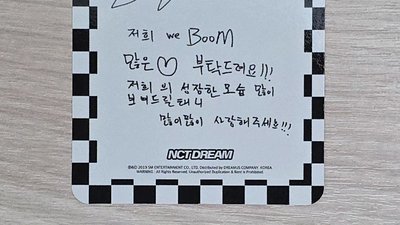 저희 we BooM
많은 ♡ 부탁드려요!!!
저희 의 성장한 모습 많이
보여드릴테니
많이많이 사랑해주세요!!!
NCT DREAM
℗&© 2019 SM ENTERTAINMENT CO., LTD. Distributed by DREAMUS COMPANY. KOREA
WARNING : All Rights Reserved. Unauthorized Duplication & Rent is Prohibited.